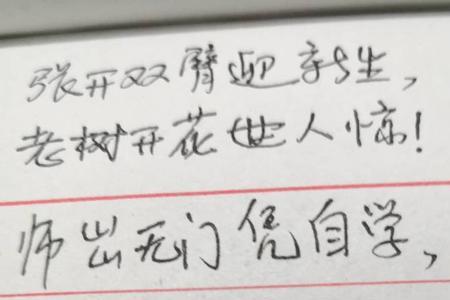 张开双臂迎新生，
老树开花世人惊！
师出无门凭自学，